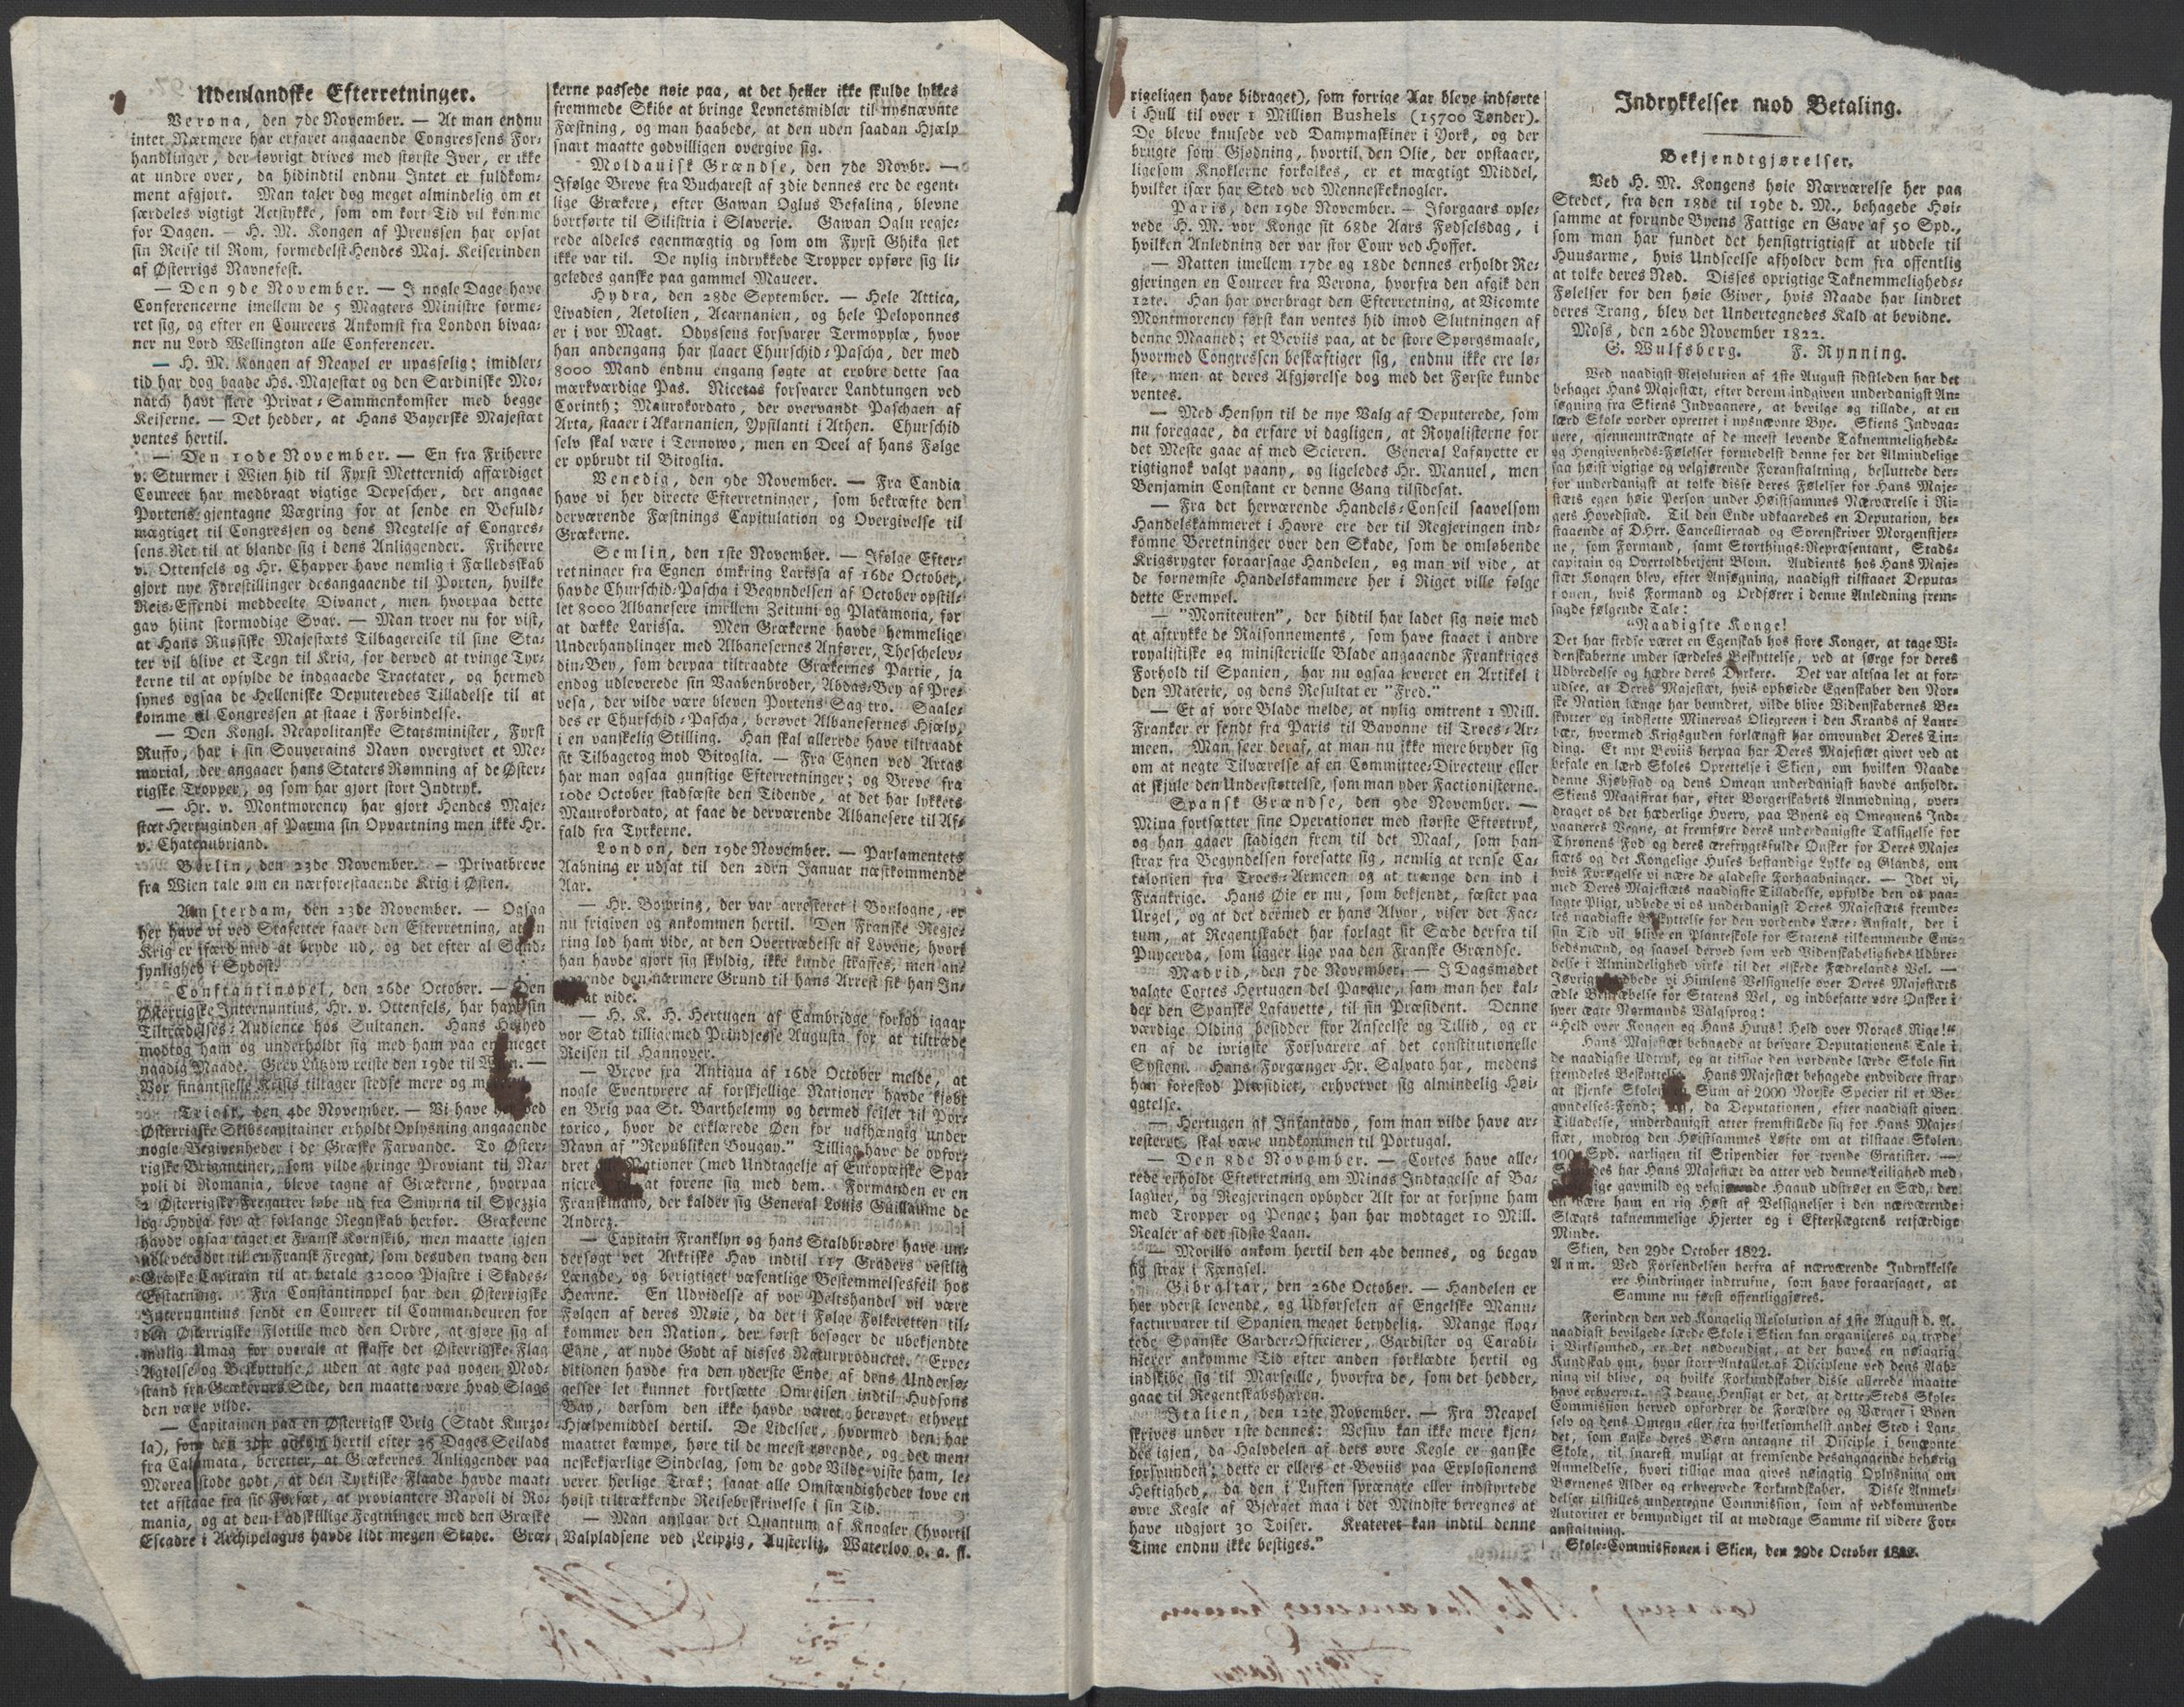 Udenlandske Efterretninger.
Verona, den 7de November. — At man endnu
intet Nærmere har erfaret angaaende Congressens For-
handlinger, der iøvrigt drives med største Iver, er ikke
at undre over, da hidindtil endnu Intet er fuldkom-
ment afgjort. Man taler dog meget almindelig om et
særdeles vigtigt Actstykke, som om kort Tid vil komme
for Dagen. — H. M. Kongen af Preussen har opsat
sin Reise til Rom, formedelst Hendes Maj. Keiserinden
af Østerrigs Navnefest.
— Den 9de November. — I nogle Dage have
Conferencerne imellem de 5 Magters Ministre forme-
ret sig, og efter en Coureers Ankomst fra London bivaa-
ner nu Lord Wellington alle Conferencer.
— H. M. Kongen af Neapel er upasselig; imidler-
tid har dog baade Hs. Majestæt og den Sardiniske Mo-
narch havt flere Privat-Sammenkomster med begge
Keiserne. — Det hedder, at Hans Bayerske Majestæt
ventes hertil.
— Den 10de November. — En fra Friherre
v. Sturmer i Wien hid til Fyrst Metternich affærdiget
Coureer har medbragt vigtige Depescher, der angaae
Portens gjentagne Vægring for at sende en Befuld-
mægtiget til Congressen og dens Negtelse af Congres-
sens Ret til at blande sig i dens Anliggender. Friherre
v. Ottenfels og Hr. Chapper have nemlig i Fælledsskab
gjort nye Forestillinger desangaaende til Porten, hvilke
Reis-Effendi meddeelte Divanet, men hvorpaa dette
gav hiint stormodige Svar. — Man troer nu for vist,
at Hans Russiske Majestæts Tilbagereise til sine Sta-
ter vil blive et Tegn til Krig, for derved at tvinge Tyr-
kerne til at opfylde de indgaaede Tractater, og hermed
synes ogsaa de Helleniske Deputeredes Tilladelse til at
komme til Congressen at staae i Forbindelse.
— Den Kongl. Neapolitanske Statsminister, Fyrst
Ruffo, har i sin Souverains Navn overgivet et Me-
morial, der angaaer hans Staters Rømning af de Øster-
rigske Tropper, og som har gjort stort Indtryk.
— Hr. v. Montmorency har gjort Hendes Maje-
stæt Hertuginden af Parma sin Opvartning men ikke Hr.
v. Chateaubriand.
Berlin, den 23de November. — Privatbreve
fra Wien tale om en nærforestaaende Krig i Østen.
Amsterdam, den 23de November. — Ogsaa
her have vi ved Stafetter faaet den Efterretning, at en
Krig er ifærd med at bryde ud, og det efter al Sand-
synlighed i Sydost.
Constantinopel, den 26de October. — Den
Østerrigske Internuntius, Hr. v. Ottenfels, har havt sin
Tiltrædelses-Audience hos Sultanen. Hans Høihed
modtog ham og underholdt sig med ham paa en meget
naadig Maade. Grev Lützow reiste den 19de til Wien. —
Vor finantsielle Krisis tiltager stedse mere og
Triest, den 4de November. — Vi have ved
Østerrigske Skibscapitainer erholdt Oplysning angaaende
nogle Begivenheder i de Græske Farvande. To Øster-
rigske Brigantiner, som vilde bringe Proviant til Na-
poli di Romania, bleve tagne af Grækerne, hvorpaa
2 Østerrigske Fregatter løbe ud fra Smyrna til Spezzia
og Hydra for at forlange Regnskab herfor. Grækerne
havde ogsaa taget et Fransk Kornskib, men maatte igjen
udlevere det til en Fransk Fregat, som desuden tvang den
Græske Capitain til at betale 32000 Piastre i Skades-
Erstatning. Fra Constantinopel har den Østerrigske
Internuntius sendt en Coureer til Commandeuren for
den Østerrigske Flotille med den Ordre, at gjøre sig al
mulig Umag for overalt at skaffe det Østerrigske Flag
Agtelse og Beskyttelse, uden at agte paa nogen Mod-
stand fra Grækernes Side, den maatte være hvad Slags
den være vilde.
— Capitainen paa en Østerrigsk Brig (Stadt Kurzo-
la), som den 3die ankom hertil efter 25 Dages Seilads
fra Calamata, beretter, at Grækernes Anliggender paa
Morea stode godt, at den Tyrkiske Flaade havde maat-
tet afstaae fra sit Forsæt, at proviantere Napoli di Ro-
mania, og at den i adskillige Fegtninger med den Græske
Escadre i Archipelagus havde lidt megen Skade. Græ-
kerne passede nøie paa, at det heller ikke skulde lykkes
fremmede Skibe at bringe Levnetsmidler til nysnævnte
Fæstning, og man haabede, at den uden saadan Hjælp
snart maatte godvilligen overgive sig.
Moldauisk Grændse, den 7de Novbr. —
Ifølge Breve fra Bucharest af 3die dennes ere de egent-
lige Grækere, efter Gawan Oglus Befaling, blevne
bortførte til Silistria i Slaverie. Gawan Oglu regje-
rede aldeles egenmægtig og som om Fyrst Ghika slet
ikke var til. De nylig indrykkede Tropper opføre sig li-
geledes ganske paa gammel Maneer.
Hydra, den 28de September. — Hele Attica,
Livadien, Aetolien, Acarnanien, og hele Peloponnes
er i vor Magt. Odysseus forsvarer Termopylæ, hvor
han andengang har slaaet Churschid-Pascha, der med
8000 Mand endnu engang søgte at erobre dette saa
mærkværdige Pas. Nicetas forsvarer Landtungen ved
Corinth; Maurokordato, der overvandt Paschaen af
Arta, staaer i Akarnanien, Ypsilanti i Athen. Churschid
selv skal være i Ternowo, men en Deel af hans Følge
er opbrudt til Bitoglia.
Venedig, den 9de November. — Fra Candia
have vi her directe Efterretninger, som bekræfte den
derværende Fæstnings Capitulation og Overgivelse til
Grækerne.
Semlin, den 1ste November. — Ifølge Efter-
retninger fra Egnen omkring Larissa af 16de October,
havde Churschid-Pascha i Begyndelsen af October opstil-
let 8000 Albanesere imellem Zeituni og Platamona, for
at dække Larissa. Men Grækerne havde hemmelige
Underhandlinger med Albanesernes Anfører, Theschelev-
din-Bey, som derpaa tiltraadte Grækernes Partie, ja
endog udleverede sin Vaabenbroder, Abdas-Bey af Pre-
vesa, der vilde være bleven Portens Sag tro. Saale-
des er Churschid-Pascha, berøvet Albanesernes Hjælp,
i en vanskelig Stilling. Han skal allerede have tiltraadt
sit Tilbagetog mod Bitoglia. — Fra Egnen ved Artas
har man ogsaa gunstige Efterretninger; og Breve fra
10de October stadfæste den Tidende, at det har lykkets
Maurokordato, at faae de derværende Albanesere til Af-
fald fra Tyrkerne.
London, den 19de November. — Parlamentets
Aabning er udsat til den 2den Januar næstkommende
Aar.
— Hr. Bowring, der var arresteret i Boulogne, er
nu frigiven og ankommen hertil. Den Franske Regje-
ring lod ham vide, at den Overtrædelse af Lovene, hvori
han havde gjort sig skyldig, ikke kunde straffes, men an-
den nærmere Grund til hans Arrest fik han In-
at vide.
— H. K. H. Hertugen af Cambridge forlod igaar
vor Stad tilligemed Prindsesse Augusta for at tiltræde
Reisen til Hannover.
— Breve fra Antigua af 16de October melde, at
nogle Eventyrere af forskjellige Nationer havde kjøbt
en Brig paa St. Barthelemy og dermed seilet til Por-
torico, hvor de erklærede Øen for uafhængig under
Navn af "Republiken Bougay." Tillige have de opfor-
dret Nationer (med Undtagelse af Europæiske Spa-
niere at forene sig med dem. Formanden er en
Franskmand, der kalder sig General Louis Guillaume de
Andrez.
— Capitain Franklyn og hans Staldbrødre have un-
dersøgt det Arktiske Hav indtil 117 Graders vestlig
Længde, og berigtiget væsentlige Bestemmelsesfeil hos
Hearne. En Udvidelse af vor Peltshandel vil være
Følgen af deres Møie, da det i Følge Folkeretten til-
kommer den Nation, der først besøger de ubekjendte
Egne, at nyde Godt af disses Naturproducter. Expe-
ditionen havde fra den yderste Ende af dens Undersø-
gelser let kunnet fortsætte Omreisen indtil Hudsons
Bay, dersom den ikke havde været berøvet ethvert
Hjælpemiddel dertil. De Lidelser, hvormed den har
maattet kæmpe, høre til de meest rørende, og det men-
neskekjærlige Sindelag, som de gode Vilde viste ham, le-
verer herlige Træk; saaat alle Omstændigheder love en
høist tiltrækkende Reisebeskrivelse i sin Tid.
— Man anslaar det Quantum af Knogler (hvortil
Valpladsene ved Leipzig, Austerliz, Waterloo o. a. fl.
rigeligen have bidraget), som forrige Aar bleve indførte
i Hull til over 1 Million Bushels (15700 Tønder).
De bleve knusede ved Dampmaskiner i York, og der
brugte som Gjødning, hvortil den Olie, der opstaaer,
ligesom Knoklerne forkalkes, er et mægtigt Middel,
hvilket især har Sted ved Menneskeknogler.
Paris, den 19de November. — Iforgaars ople-
vede H. M. vor Konge sit 68de Aars Fødselsdag, i
hvilken Anledning der var stor Cour ved Hoffet.
— Natten imellem 17de og 18de dennes erholdt Re-
gjeringen en Coureer fra Verona, hvorfra den afgik den
12te. Han har overbragt den Efterretning, at Vicomte
Montmorency først kan ventes hid imod Slutningen af
denne Maaned; et Beviis paa, at de store Spørgsmaale,
hvormed Congressen beskæftiger sig, endnu ikke ere lø-
ste, men at deres Afgjørelse dog med det Første kunde
ventes.
— Med Hensyn til de nye Valg af Deputerede, som
nu foregaae, da erfare vi dagligen, at Royalisterne for
det Meste gaae af med Seieren. General Lafayette er
rigtignok valgt paany, og ligeledes Hr. Manuel, men
Benjamin Constant er denne Gang tilsidesat.
— Fra det herværende Handels-Conseil saavelsom
Handelskammeret i Havre ere der til Regjeringen ind-
komne Beretninger over den Skade, som de omløbende
Krigsrygter foraarsage Handelen, og man vil vide, at
de fornemste Handelskammere her i Riget ville følge
dette Exempel.
— "Moniteuren", der hidtil har ladet sig nøie med
at aftrykke de Raisonnements, som have staaet i andre
royalistiske og ministerielle Blade angaaende Frankriges
Forhold til Spanien, har nu ogsaa leveret en Artikel i
den Materie, og dens Resultat er "Fred."
— Et af vore Blade melde, at nylig omtrent 1 Mill.
Franker er sendt fra Paris til Bayonne til Troes-Ar-
meen. Man seer deraf, at man nu ikke mere bryder sig
om at negte Tilværelse af en Committee-Directeur eller
at skjule den Understøttelse, som man yder Factionisterne.
Spansk Grændse, den 9de November. —
Mina fortsætter sine Operationer med største Eftertryk,
og han gaaer stadigen frem til det Maal, som han
strax fra Begyndelsen foresatte sig, nemlig at rense Ca-
talonien fra Troes-Armeen og at trænge den ind i
Frankrige. Hans Øie er nu, som bekjendt, fæstet paa
Urgel, og at det dermed er hans Alvor, viser det Fac-
tum, at Regentskabet har forlagt sit Sæde derfra til
Puycerda, som ligger lige paa den Franske Grændse.
Madrid, den 7de November. — I Dagsmødet
valgte Cortes Hertugen del Parque, som man her kal-
der den Spanske Lafayette, til sin Præsident. Denne
værdige Olding besidder stor Anseelse og Tillid, og er
en af de ivrigste Forsvarere af det constitutionelle
System. Hans Forgænger Hr. Salvato har, medens
han forestod Præsidiet, erhvervet sig almindelig Høi-
agtelse.
— Hertugen af Infantado, som man vilde have ar-
resteret, skal være undkommen til Portugal.
— Den 8de November. — Cortes have alle-
rede erholdt Efterretning om Minas Indtagelse af Ba-
laguer, og Regjeringen opbyder Alt for at forsyne ham
med Tropper og Penge; han har modtaget 10 Mill.
Realer af det sidste Laan.
— Morillo ankom hertil den 4de dennes, og begav
sig strax i Fængsel.
Gibraltar, den 26de October. — Handelen er
her yderst levende, og Udførselen af Engelske Manu-
facturvarer til Spanien meget betydelig. Mange flyg-
tede Spanske Garder-Officierer, Gardister og Carabi-
nierer ankomme Tid efter anden forklædte hertil og
indskibe sig til Marseille, hvorfra de, som det hedder,
gaae til Regentskabshæren.
Italien, den 12te November. — Fra Neapel
skrives under 1ste dennes: Vesuv kan ikke mere kjen-
des igjen, da Halvdelen af dets øvre Kegle er ganske
forsvunden; dette er ellers et Beviis paa Explosionens
Heftighed, da den i Luften sprængte eller indstyrtede
øvre Kegle af Bjerget maa i det Mindste beregnes at
have udgjort 30 Toiser. Krateret kan indtil denne
Time endnu ikke bestiges."
Indrykkelser mod Betaling.
Bekjendtgjørelser.
Ved H. M. Kongens høie Nærværelse her paa
Stedet, fra den 18de til 19de d. M., behagede Høi-
samme at forunde Byens Fattige en Gave af 50 Spd.,
som man har fundet det hensigtrigtigst at uddele til
Huusarme, hvis Undseelse afholder dem fra offentlig
at tolke deres Nød. Disses oprigtige Taknemmeligheds-
Følelser for den høie Giver, hvis Naade har lindret
deres Trang, blev det Undertegnedes Kald at bevidne.
Moss, den 26de November 1822.
G. Wulfsberg. F. Rynning.
Ved naadigst Resolution af 1ste August sidstleden har det
behaget Hans Majestæt, efter derom indgiven underdanigst An-
søgning fra Skiens Indvaanere, at bevilge og tillade, at en
lærd Skole vorder oprettet i nysnævnte Bye. Skiens Indvaa-
nere, gjennemtrængte af de meest levende Taknemmeligheds-
og Hengivenheds-Følelser formedelst denne for det Almindelige
saa høist vigtige og velgjørende Foranstaltning, besluttede der-
for underdanigst at tolke disse deres Følelser for Hans Maje-
stæts egen høie Person under Høistsammes Nærværelse i Ri-
gets Hovedstad. Til den Ende udkaaredes en Deputation, be-
staaende af DHrr. Cancelliraad og Sorenskriver Morgenstjer-
ne, som Formand, samt Storthings-Repræsentant, Stads-
capitain og Overtoldbetjent Blom. Audients hos Hans Maje-
stæt Kongen blev, efter Ansøgning, naadigst tilstaaet Deputa-
tionen, hvis Formand og Ordfører i denne Anledning frem-
sagde følgende Tale:
"Naadigste Konge!
Det har stedse været en Egenskab hos store Konger, at tage Vi-
denskaberne under særdeles Beskyttelse, ved at sørge for deres
Udbredelse og hædre deres Dyrkere. Det var altsaa let at for-
udsee, at Deres Majestæt, hvis ophøiede Egenskaber den Nor-
ske Nation længe har beundret, vilde blive Videnskabernes Be-
skytter og indflette Minervas Oliegreen i den Krands af Laur-
bær, hvormed Krigsguden forlængst har omvundet Deres Tin-
ding. Et nyt Beviis herpaa har Deres Majestæt givet ved at
befale en lærd Skoles Oprettelse i Skien, om hvilken Naade
denne Kjøbstad og dens Omegn underdanigst havde anholdt.
Skiens Magistrat har, efter Borgerskabets Anmodning, over-
draget os det hæderlige Hverv, paa Byens og Omegnens Ind-
vaaneres Vegne, at fremføre deres underdanigste Taksigelse for
Thronens Fod og deres ærefrygtsfulde Ønsker for Deres Maje-
stæts og det Kongelige Huses bestandige Lykke og Glands, om
hvis Forøgelse vi nære de gladeste Forhaabninger. — Idet vi,
med Deres Majestæts naadigste Tilladelse, opfylde den os paa-
lagte Pligt, udbede vi os underdanigst Deres Majestæts fremde-
les naadigste Beskyttelse for den vordende Lære-Anstalt, der i
sin Tid vil blive en Planteskole for Statens tilkommende Em-
bedsmænd, og saavel derved som ved Videnskabeligheds Udbre-
delse i Almindelighed virke til det elskede Fædrelands Vel. —
Iøvrigt udbede vi Himlens Velsignelse over Deres Majestæts
ædle Bestræbelse for Statens Vel, og indbefatte vore Ønsker i
hver ægte Normands Valgsprog:
"Held over Kongen og Hans Huus! Held over Norges Rige!"
Hans Majestæt behagede at besvare Deputationens Tale i
de naadigste Udtryk, og at tilsige den vordende lærde Skole sin
fremdeles Beskyttelse. Hans Majestæt behagede endvidere strax
at skjenke Skolen en Sum af 2000 Norske Specier til et Be-
gyndelses-Fond; da Deputationen, efter naadigst given
Tilladelse, underdanigst atter fremstillede sig for Hans Maje-
stæt, modtog den Høistsammes Løfte om at tilstaae Skolen
100 Spd. aarligen til Stipendier for tvende Gratister. —
Saaledes har Hans Majestæt da atter ved denne Leilighed med
gavmild og velgjørende Haand udstrøet en Sæd, der
vil bære ham en rig Høst af Velsignelser i den nærværende
Slægts taknemmelige Hjerter og i Efterslægtens retfærdige
Minde.
Skien, den 29de October 1822.
Anm. Ved Forsendelsen herfra af nærværende Indrykkelse
ere Hindringer indtrufne, som have foraarsaget, at
Samme nu først offentliggjøres.
Forinden den ved Kongelig Resolution af 1ste August d. A.
naadigst bevilgede lærde Skole i Skien kan organiseres og træde
i Virksomhed, er det nødvendigt, at der haves en nøiagtig
Kundskab om, hvor stort Antallet af Disciplene ved dens Aab-
ning vil blive, og hvilke Forkundskaber disse allerede maatte
have erhvervet. I denne Hensigt er det, at dette Steds Skole-
Commission herved opfordrer de Forældre og Værger i Byen
selv og dens Omegn eller fra hvilketsomhelst andet Sted i Lan-
det, som ønske deres Børn antagne til Disciple i benævnte
Skole, til snarest muligt at fremsende desangaaende behørig
Anmeldelse, hvori tillige maa gives nøiagtig Oplysning om
Børnenes Alder og erhvervede Forkundskaber. Disse Anmel-
delser tilstilles undertegne Commission, som af vedkommende
Autoritet er bemyndiget til at modtage Samme til videre For-
anstaltning.
Skole-Commissionen i Skien, den 29de October 1822.